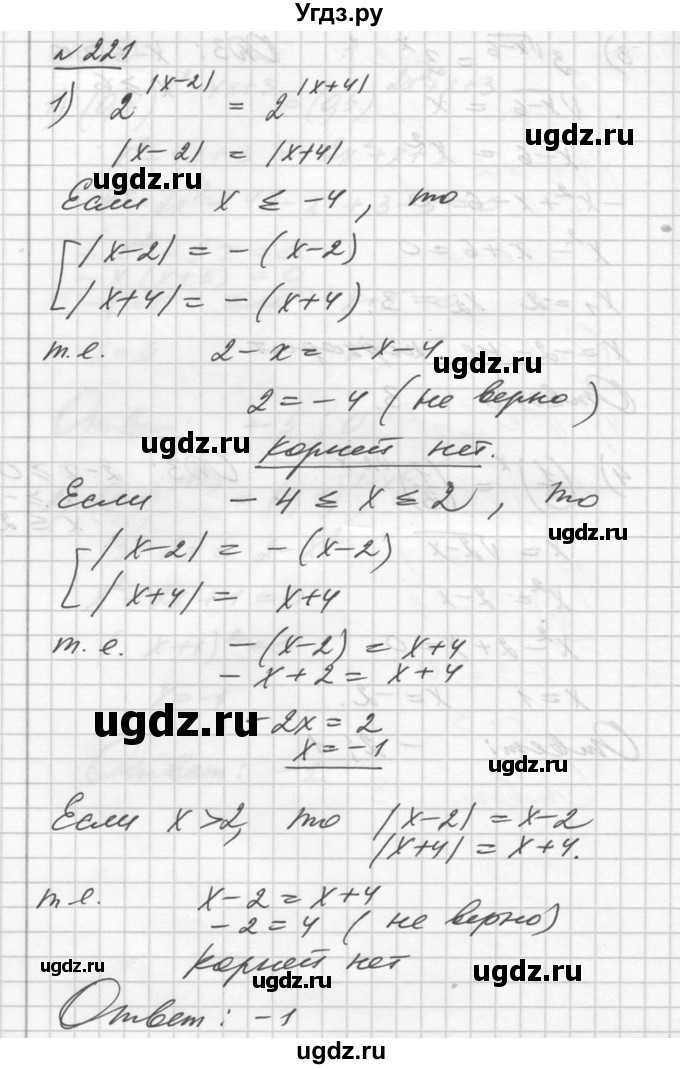 Угдз.ру
№ 221
1) 2^|x-2| = 2^|x+4|
|x-2| = |x+4|
ugdz.ru
ugdz.ru
Если x ≤ -4, то
[ |x-2| = -(x-2)
ugdz.ru
|x+4| = -(x+4)
т.е. 2-x = -x-4
ugdz.ru
2 = -4 (не верно)
ugdz.ru
корней нет.
Если -4 ≤ x ≤ 2, то
ugdz.ru
[ |x-2| = -(x-2)
|x+4| = x+4
т.е. -(x-2) = x+4
ugdz.ru
-x+2 = x+4
ugdz.ru
-2x = 2
x = -1
ugdz.ru
Если x>2, то |x-2| = x-2
|x+4| = x+4.
ugdz.ru
т.е. x-2 = x+4
-2 = 4 (не верно)
ugdz.ru
корней нет
ugdz.ru
Ответ: -1
ugdz.ru